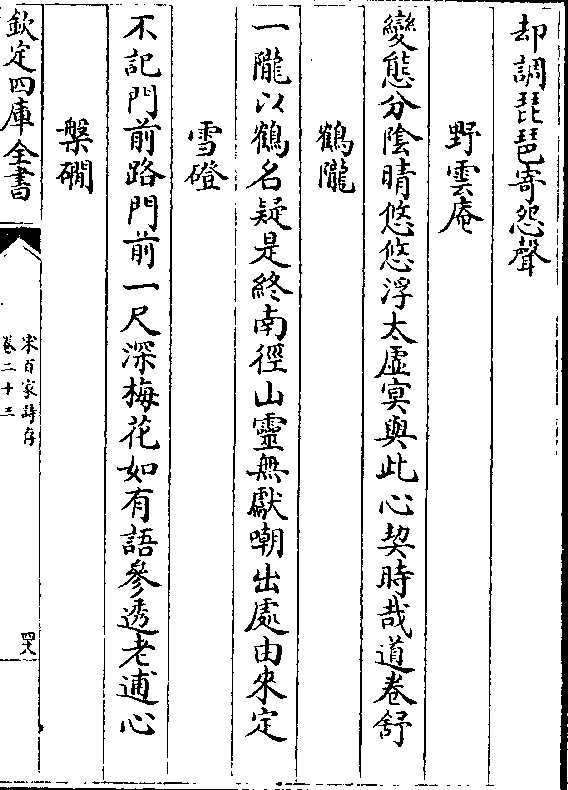 却調琵琶寄怨聲
野雲庵
變態分陰晴悠悠浮太虛冥與此心契時哉道卷舒
鶴隴
一隴以鶴名疑是終南徑山靈無獻嘲出處由來定
雪磴
不記門前路門前一尺深梅花如有語參透老逋心
槃磵
欽定四庫全書
宋百家詩存
卷二十三